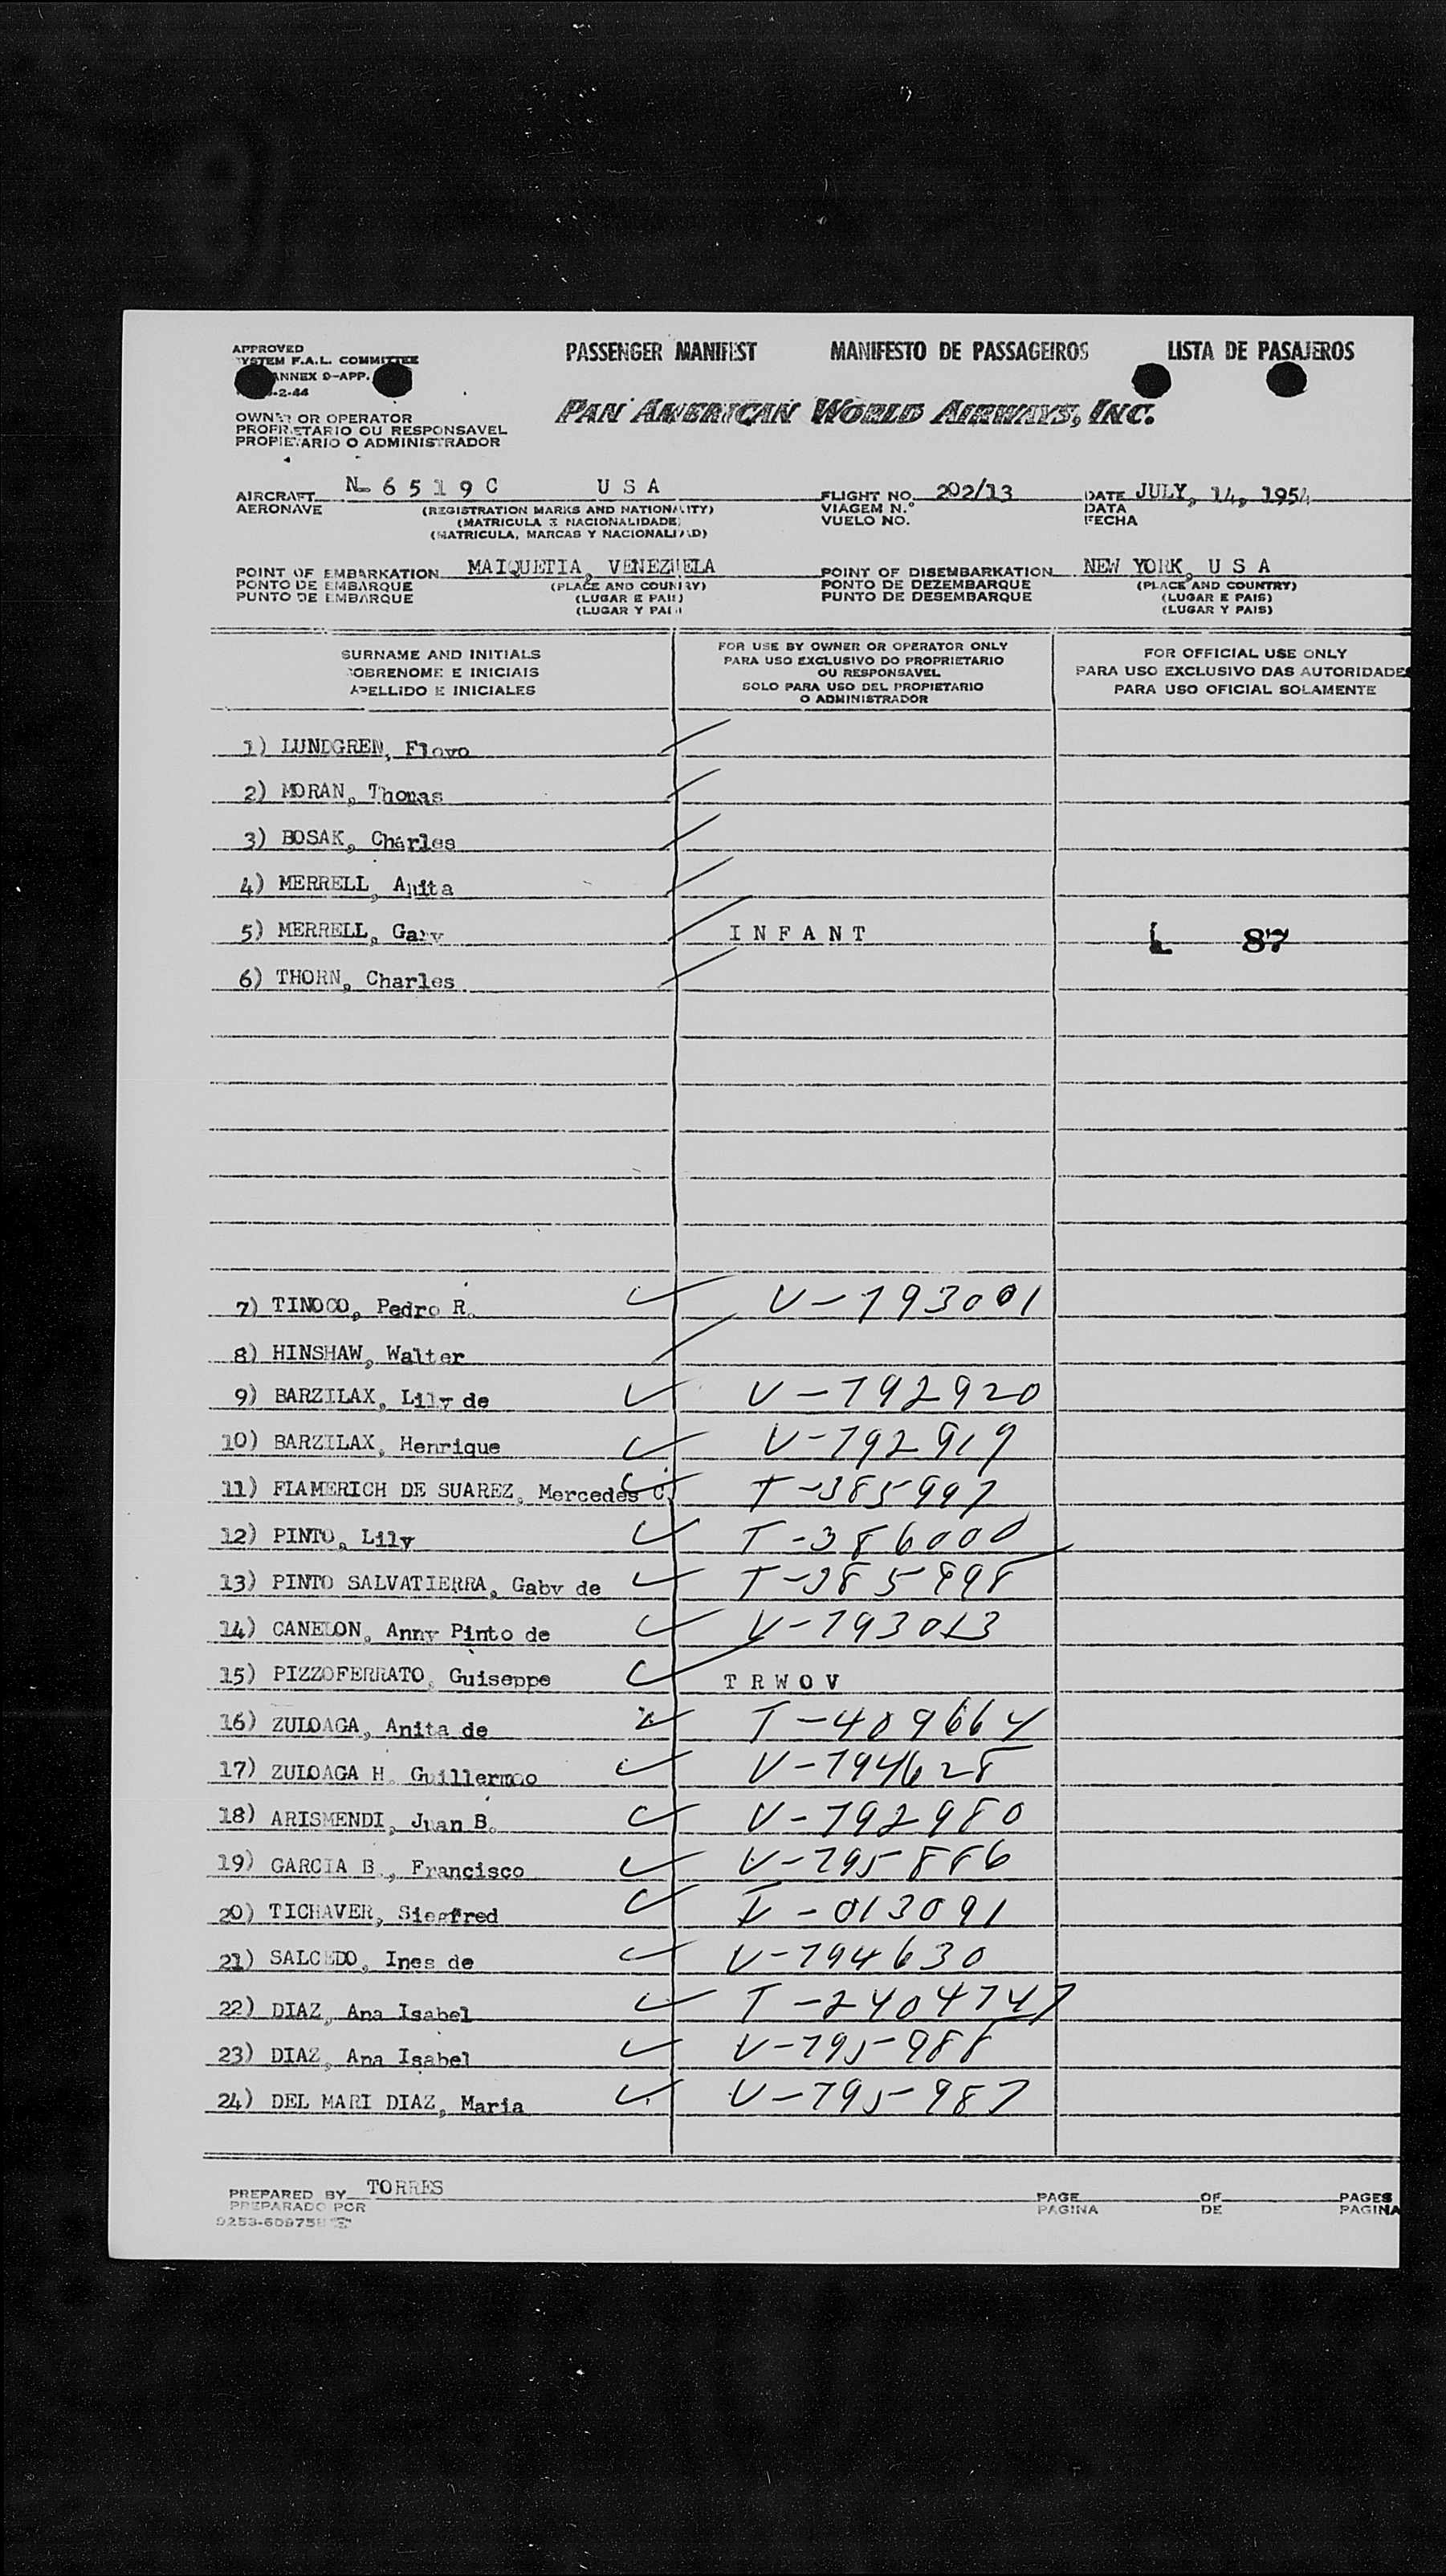 APPROVED
SYSTEM F.A.L. COMMITTEE
ANNEX 9-APP.
-2-44
PASSENGER MANIFEST MANIFESTO DE PASSAGEIROS LISTA DE PASAJEROS
PAN AMERICAN WORLD AIRWAYS, INC.
OWNER OR OPERATOR
PROPRIETARIO OU RESPONSAVEL
PROPIETARIO O ADMINISTRADOR
AIRCRAFT N- 6 5 1 9 C U S A FLIGHT NO. 202/13 DATE JULY, 14, 1954
AERONAVE (REGISTRATION MARKS AND NATIONALITY) VIAGEM N.° DATA
(MATRICULA E NACIONALIDADE) VUELO NO. FECHA
(MATRICULA, MARCAS Y NACIONALIDAD)
POINT OF EMBARKATION MAIQUETIA, VENEZUELA POINT OF DISEMBARKATION NEW YORK, U S A
PONTO DE EMBARQUE (PLACE AND COUNTRY) PONTO DE DEZEMBARQUE (PLACE AND COUNTRY)
PUNTO DE EMBARQUE (LUGAR E PAIS) PUNTO DE DESEMBARQUE (LUGAR E PAIS)
(LUGAR Y PAIS) (LUGAR Y PAIS)
SURNAME AND INITIALS
SOBRENOME E INICIAIS
APELLIDO E INICIALES
FOR USE BY OWNER OR OPERATOR ONLY
PARA USO EXCLUSIVO DO PROPRIETARIO
OU RESPONSAVEL
SOLO PARA USO DEL PROPIETARIO
O ADMINISTRADOR
FOR OFFICIAL USE ONLY
PARA USO EXCLUSIVO DAS AUTORIDADES
PARA USO OFICIAL SOLAMENTE
1) LUNDGREN, Floyo
2) MORAN, Thomas
3) BOSAK, Charles
4) MERRELL, Anita
5) MERRELL, Gary I N F A N T L 87
6) THORN, Charles
7) TINOCO, Pedro R. V-793001
8) HINSHAW, Walter
9) BARZILAX, Lily de V-792920
10) BARZILAX, Henrique V-792919
11) FIAMERICH DE SUAREZ, Mercedes C. T-385997
12) PINTO, Lily T-386000
13) PINTO SALVATIERRA, Gaby de T-385998
14) CANELON, Anny Pinto de V-793013
15) PIZZOFERRATO, Guiseppe T R W O V
16) ZULOAGA, Anita de T-409664
17) ZULOAGA H. Guillermoo V-794628
18) ARISMENDI, Juan B. V-792980
19) GARCIA B., Francisco V-795886
20) TICHAVER, Siegfred V-013091
21) SALCEDO, Ines de V-794630
22) DIAZ, Ana Isabel T-2404747
23) DIAZ, Ana Isabel V-795988
24) DEL MARI DIAZ, Maria V-795987
PREPARED BY TORRES PAGE OF PAGES
PREPARADO POR PAGINA DE PAGINA